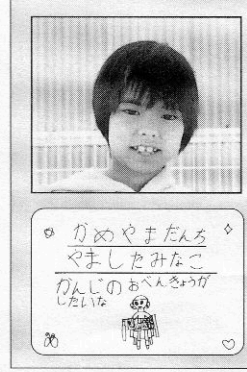 かめやまだんち
やましたみなこ
かんじのおべんきょうが
したいな